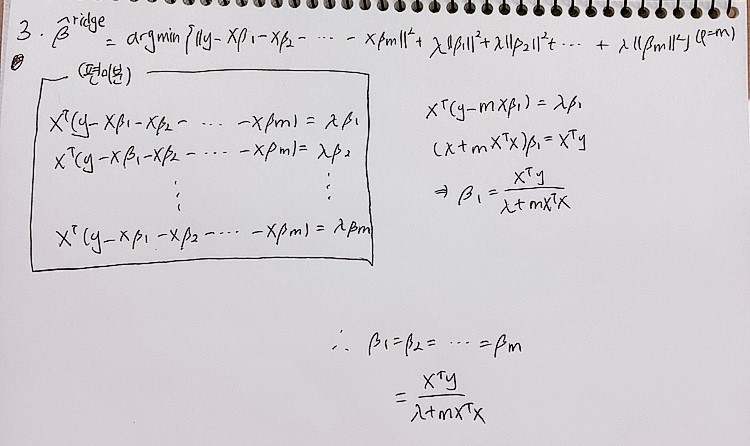 3. β̂ ridge = argmin {‖y - Xβ1 - Xβ2 - ... - Xβm‖² + λ‖β1‖² + λ‖β2‖² + ... + λ‖βm‖²} (p=m)
(편미분)
Xᵀ(y - Xβ1 - Xβ2 - ... - Xβm) = λβ1
Xᵀ(y - Xβ1 - Xβ2 - ... - Xβm) = λβ2
⋮ ⋮
Xᵀ(y - Xβ1 - Xβ2 - ... - Xβm) = λβm
Xᵀ(y - mXβ1) = λβ1
(λ + mXᵀX)β1 = Xᵀy
⇒ β1 = Xᵀy / λ + mXᵀX
∴ β1 = β2 = ... = βm
= Xᵀy / λ + mXᵀX